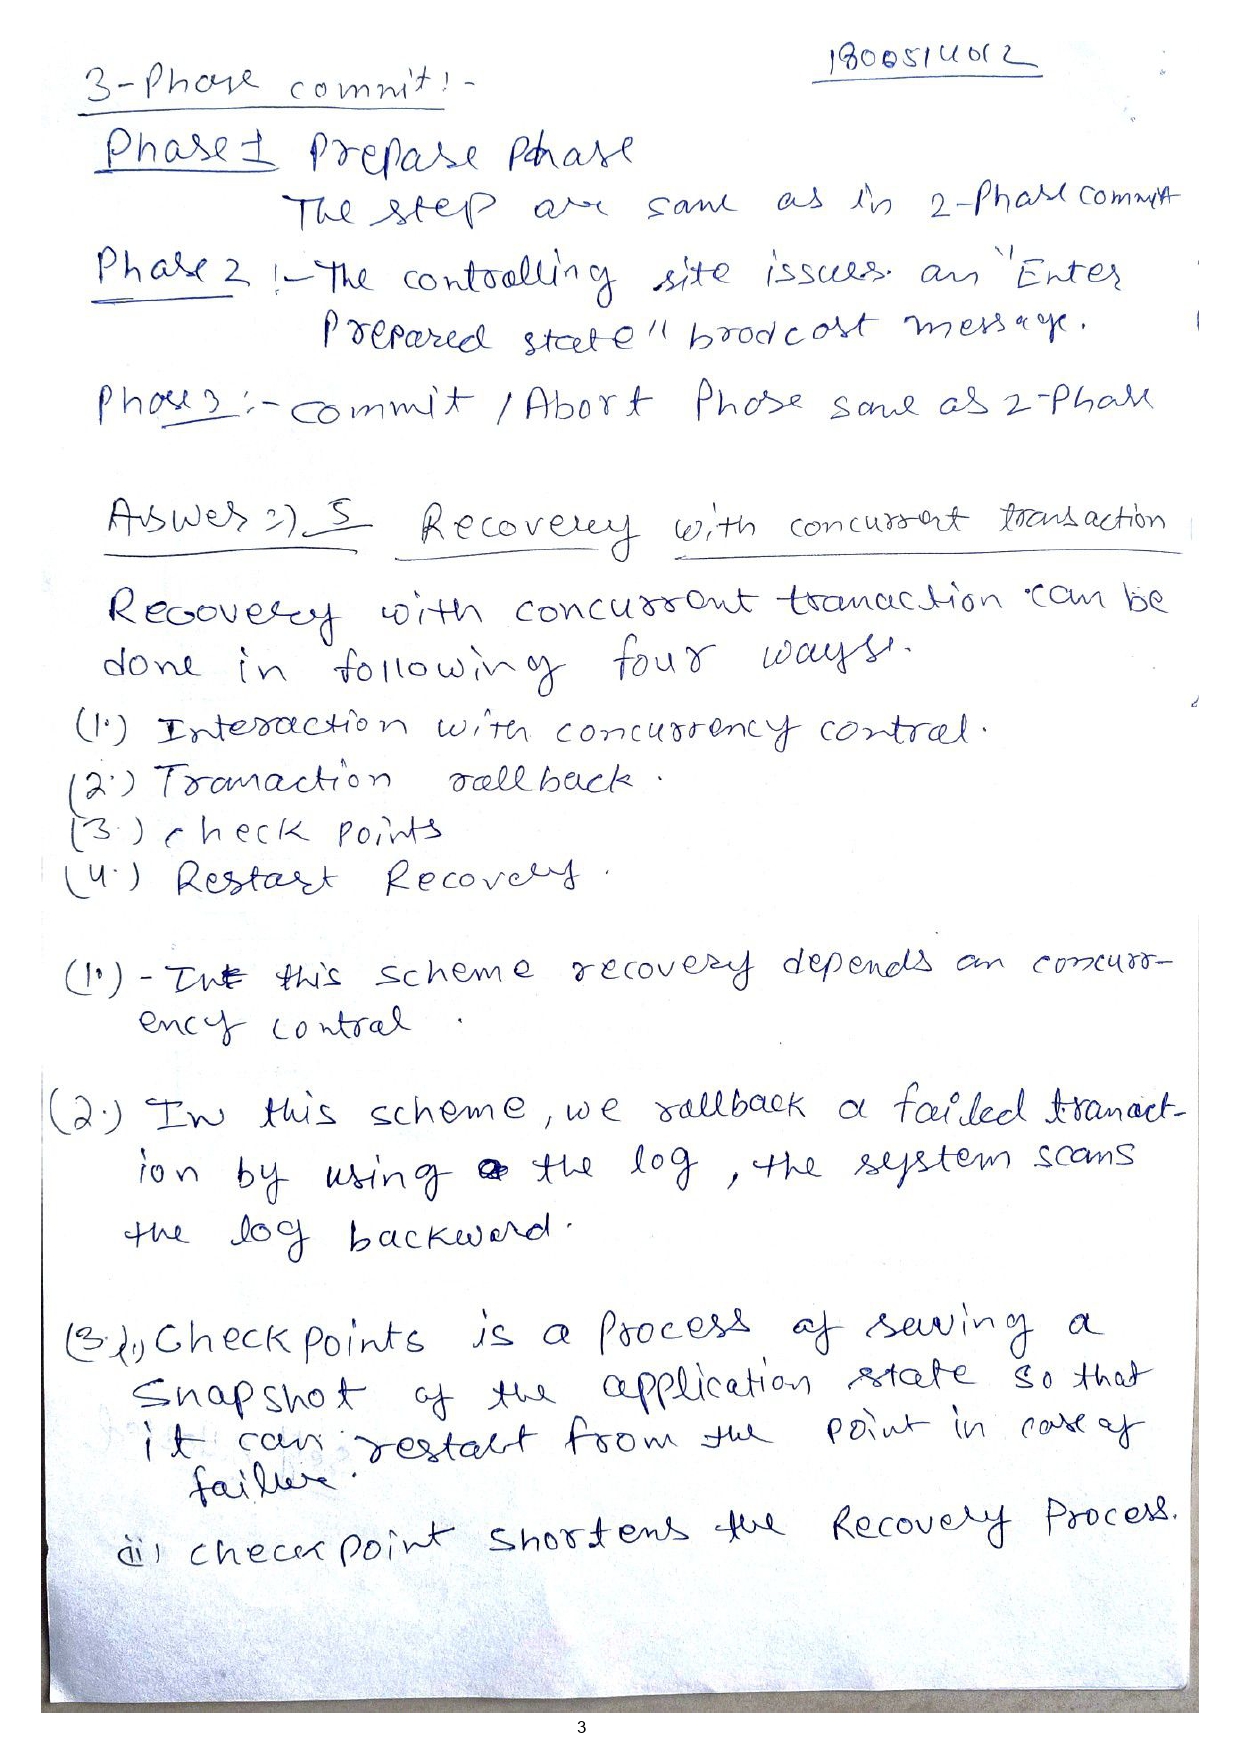 1800514012
3-Phase commit:-
Phase 1 Prepase Phase
The step are same as in 2-Phase commit
Phase 2 :- The controlling site issues an "Enter
Prepared state" brodcost message.
Phase 3 :- commit / Abort Phase same as 2-Phase
Answer =) 5 Recovery with concurrent transaction
Recovery with concurrent tranaction can be
done in following four ways:.
(1.) Interaction with concurrency contral.
(2.) Tranaction rallback.
(3.) check points
(4.) Restart Recovery.
(1.) - In this scheme recovery depends an concurr-
ency contral.
(2.) In this scheme, we rallback a failed tranact-
ion by using the log, the system scans
the log backward.
(3.) i) Check points is a process of saving a
snapshot of the application state so that
it can restart from the point in case of
failure.
ii) checkpoint shortens the Recovery Process.
3